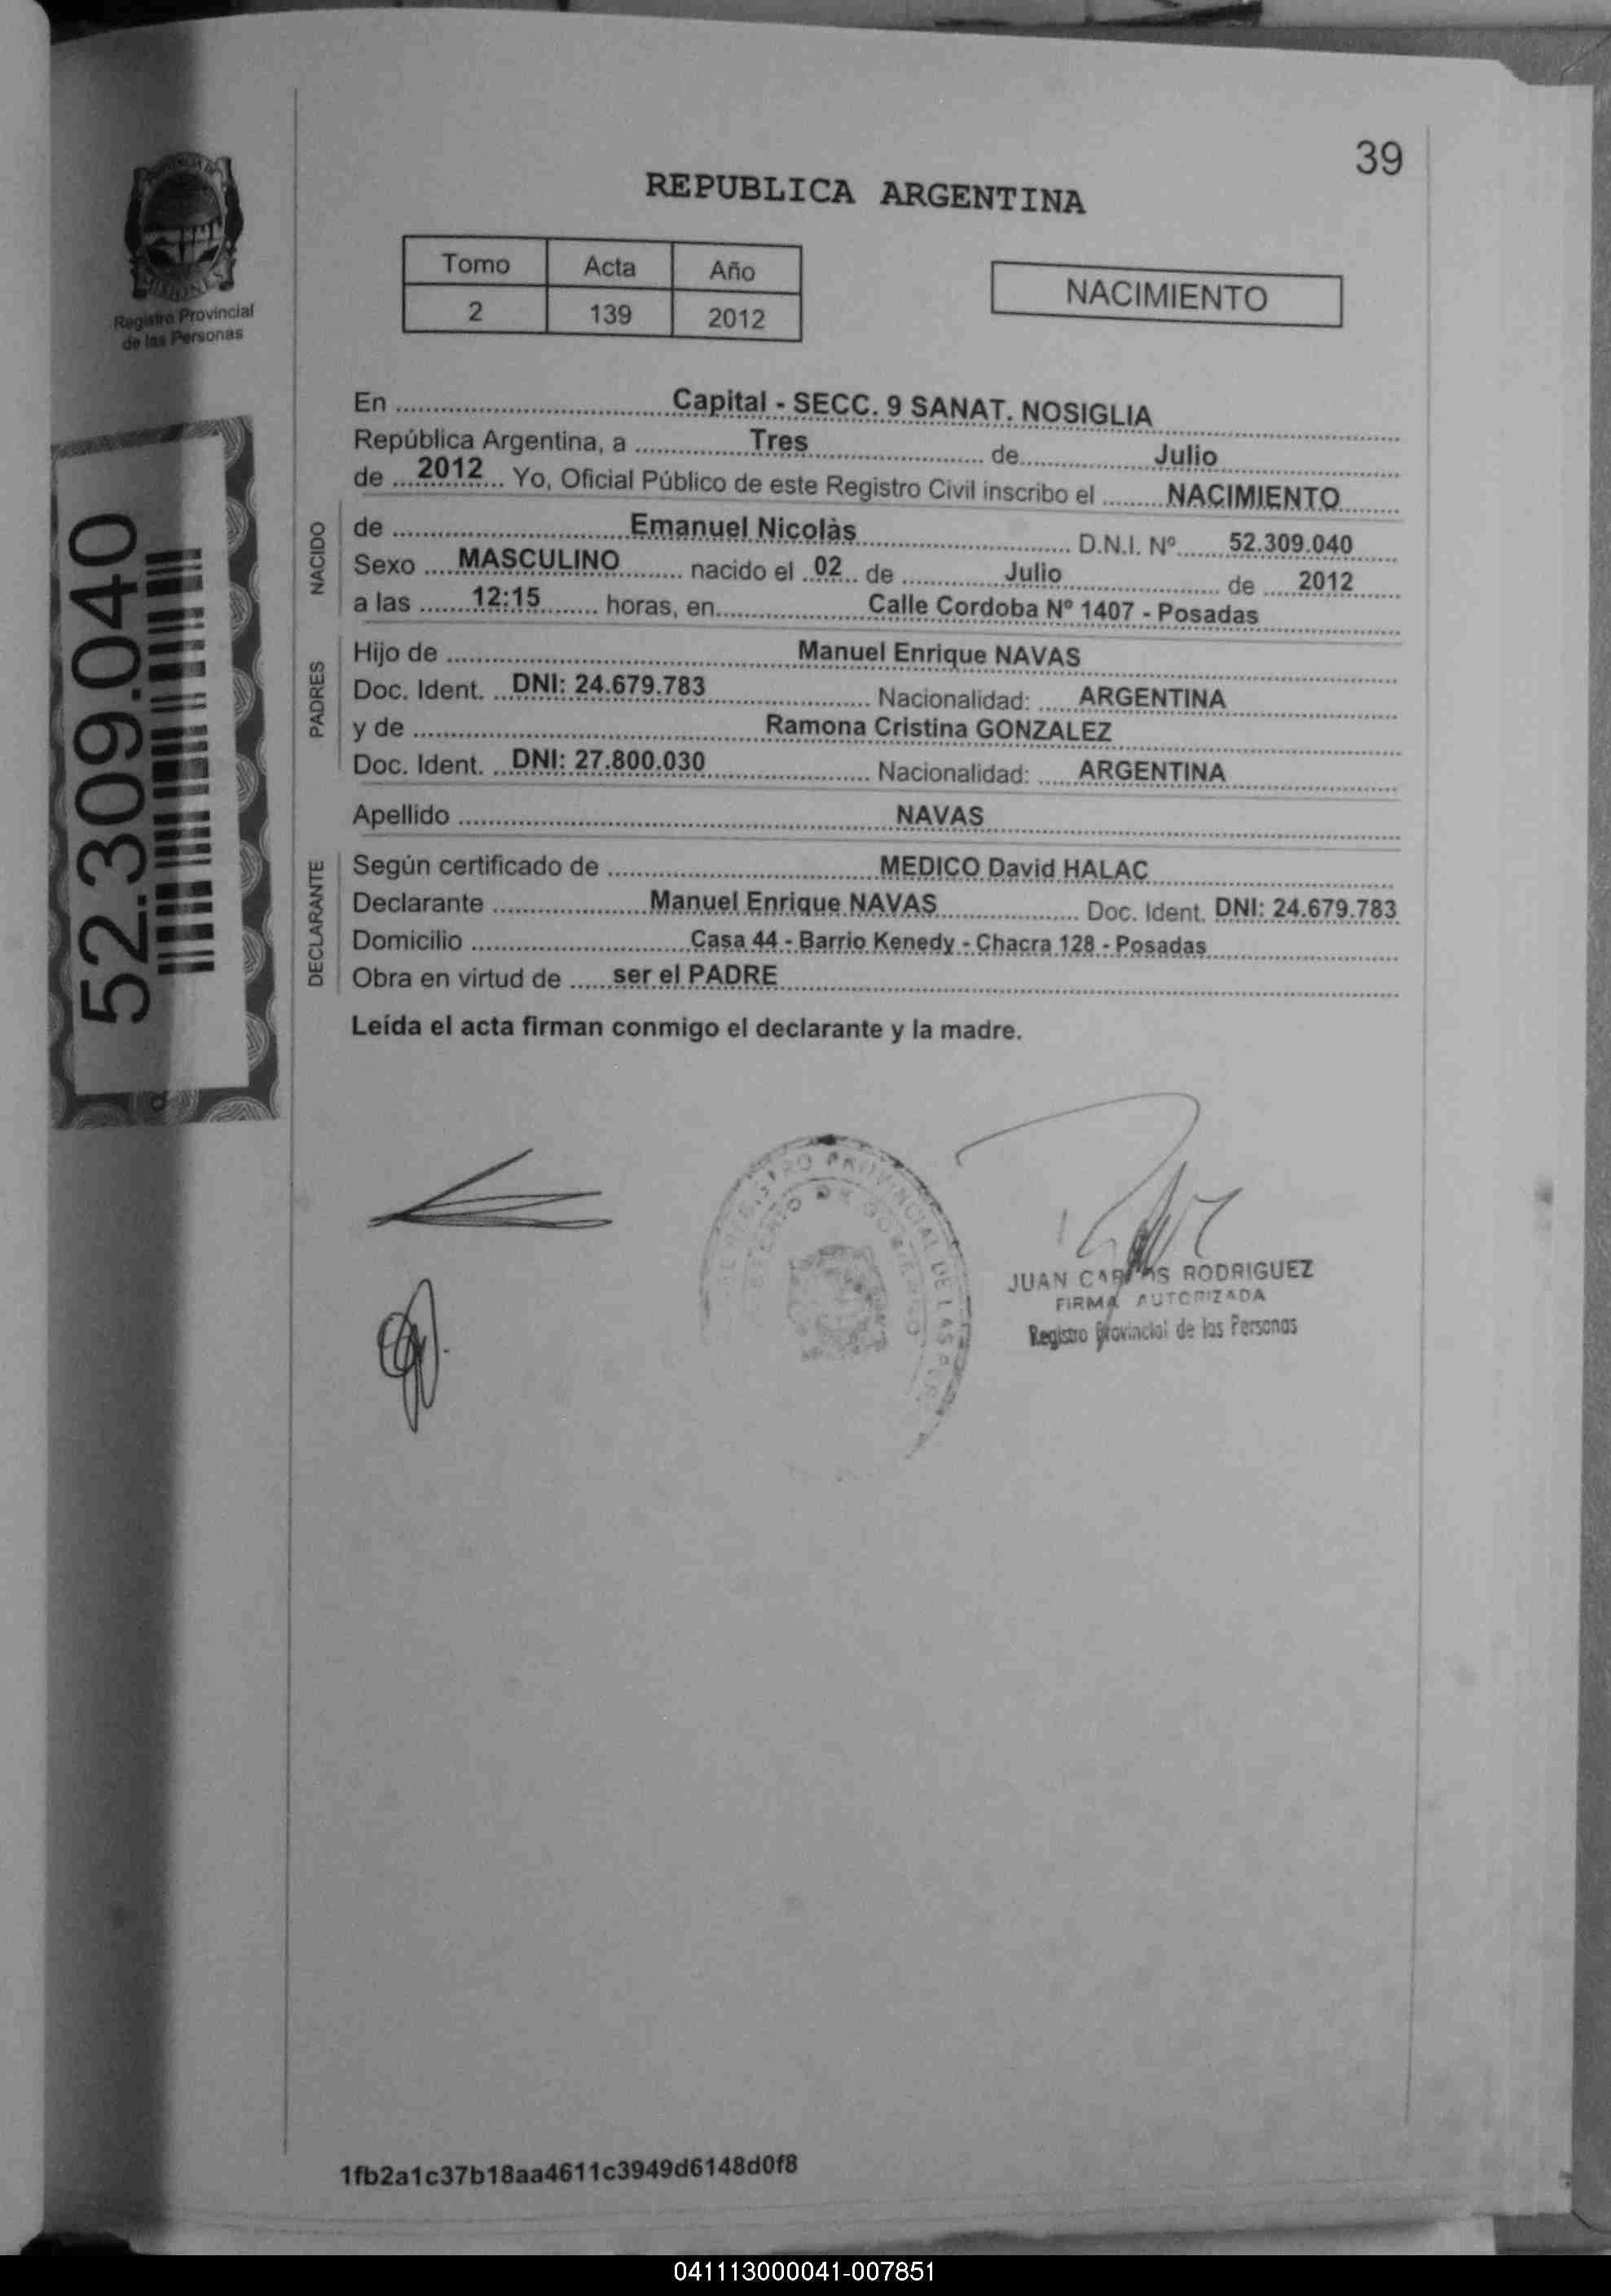 39
REPUBLICA ARGENTINA
Tomo Acta Año
2 139 2012
NACIMIENTO
Registro Provincial
de las Personas
52.309.040
En Capital - SECC. 9 SANAT. NOSIGLIA
República Argentina, a Tres de Julio
de 2012 Yo, Oficial Público de este Registro Civil inscribo el NACIMIENTO
NACIDO
de Emanuel Nicolàs D.N.I. Nº 52.309.040
Sexo MASCULINO nacido el 02 de Julio de 2012
a las 12:15 horas, en Calle Cordoba Nº 1407 - Posadas
PADRES
Hijo de Manuel Enrique NAVAS
Doc. Ident. DNI: 24.679.783 Nacionalidad: ARGENTINA
y de Ramona Cristina GONZALEZ
Doc. Ident. DNI: 27.800.030 Nacionalidad: ARGENTINA
Apellido NAVAS
DECLARANTE
Según certificado de MEDICO David HALAC
Declarante Manuel Enrique NAVAS Doc. Ident. DNI: 24.679.783
Domicilio Casa 44 - Barrio Kenedy - Chacra 128 - Posadas
Obra en virtud de ser el PADRE
Leída el acta firman conmigo el declarante y la madre.
REGISTRO PROVINCIAL DE LAS
DE GOBIERNO
JUAN CARLOS RODRIGUEZ
FIRMA AUTORIZADA
Registro Provincial de las Personas
1fb2a1c37b18aa4611c3949d6148d0f8
041113000041-007851